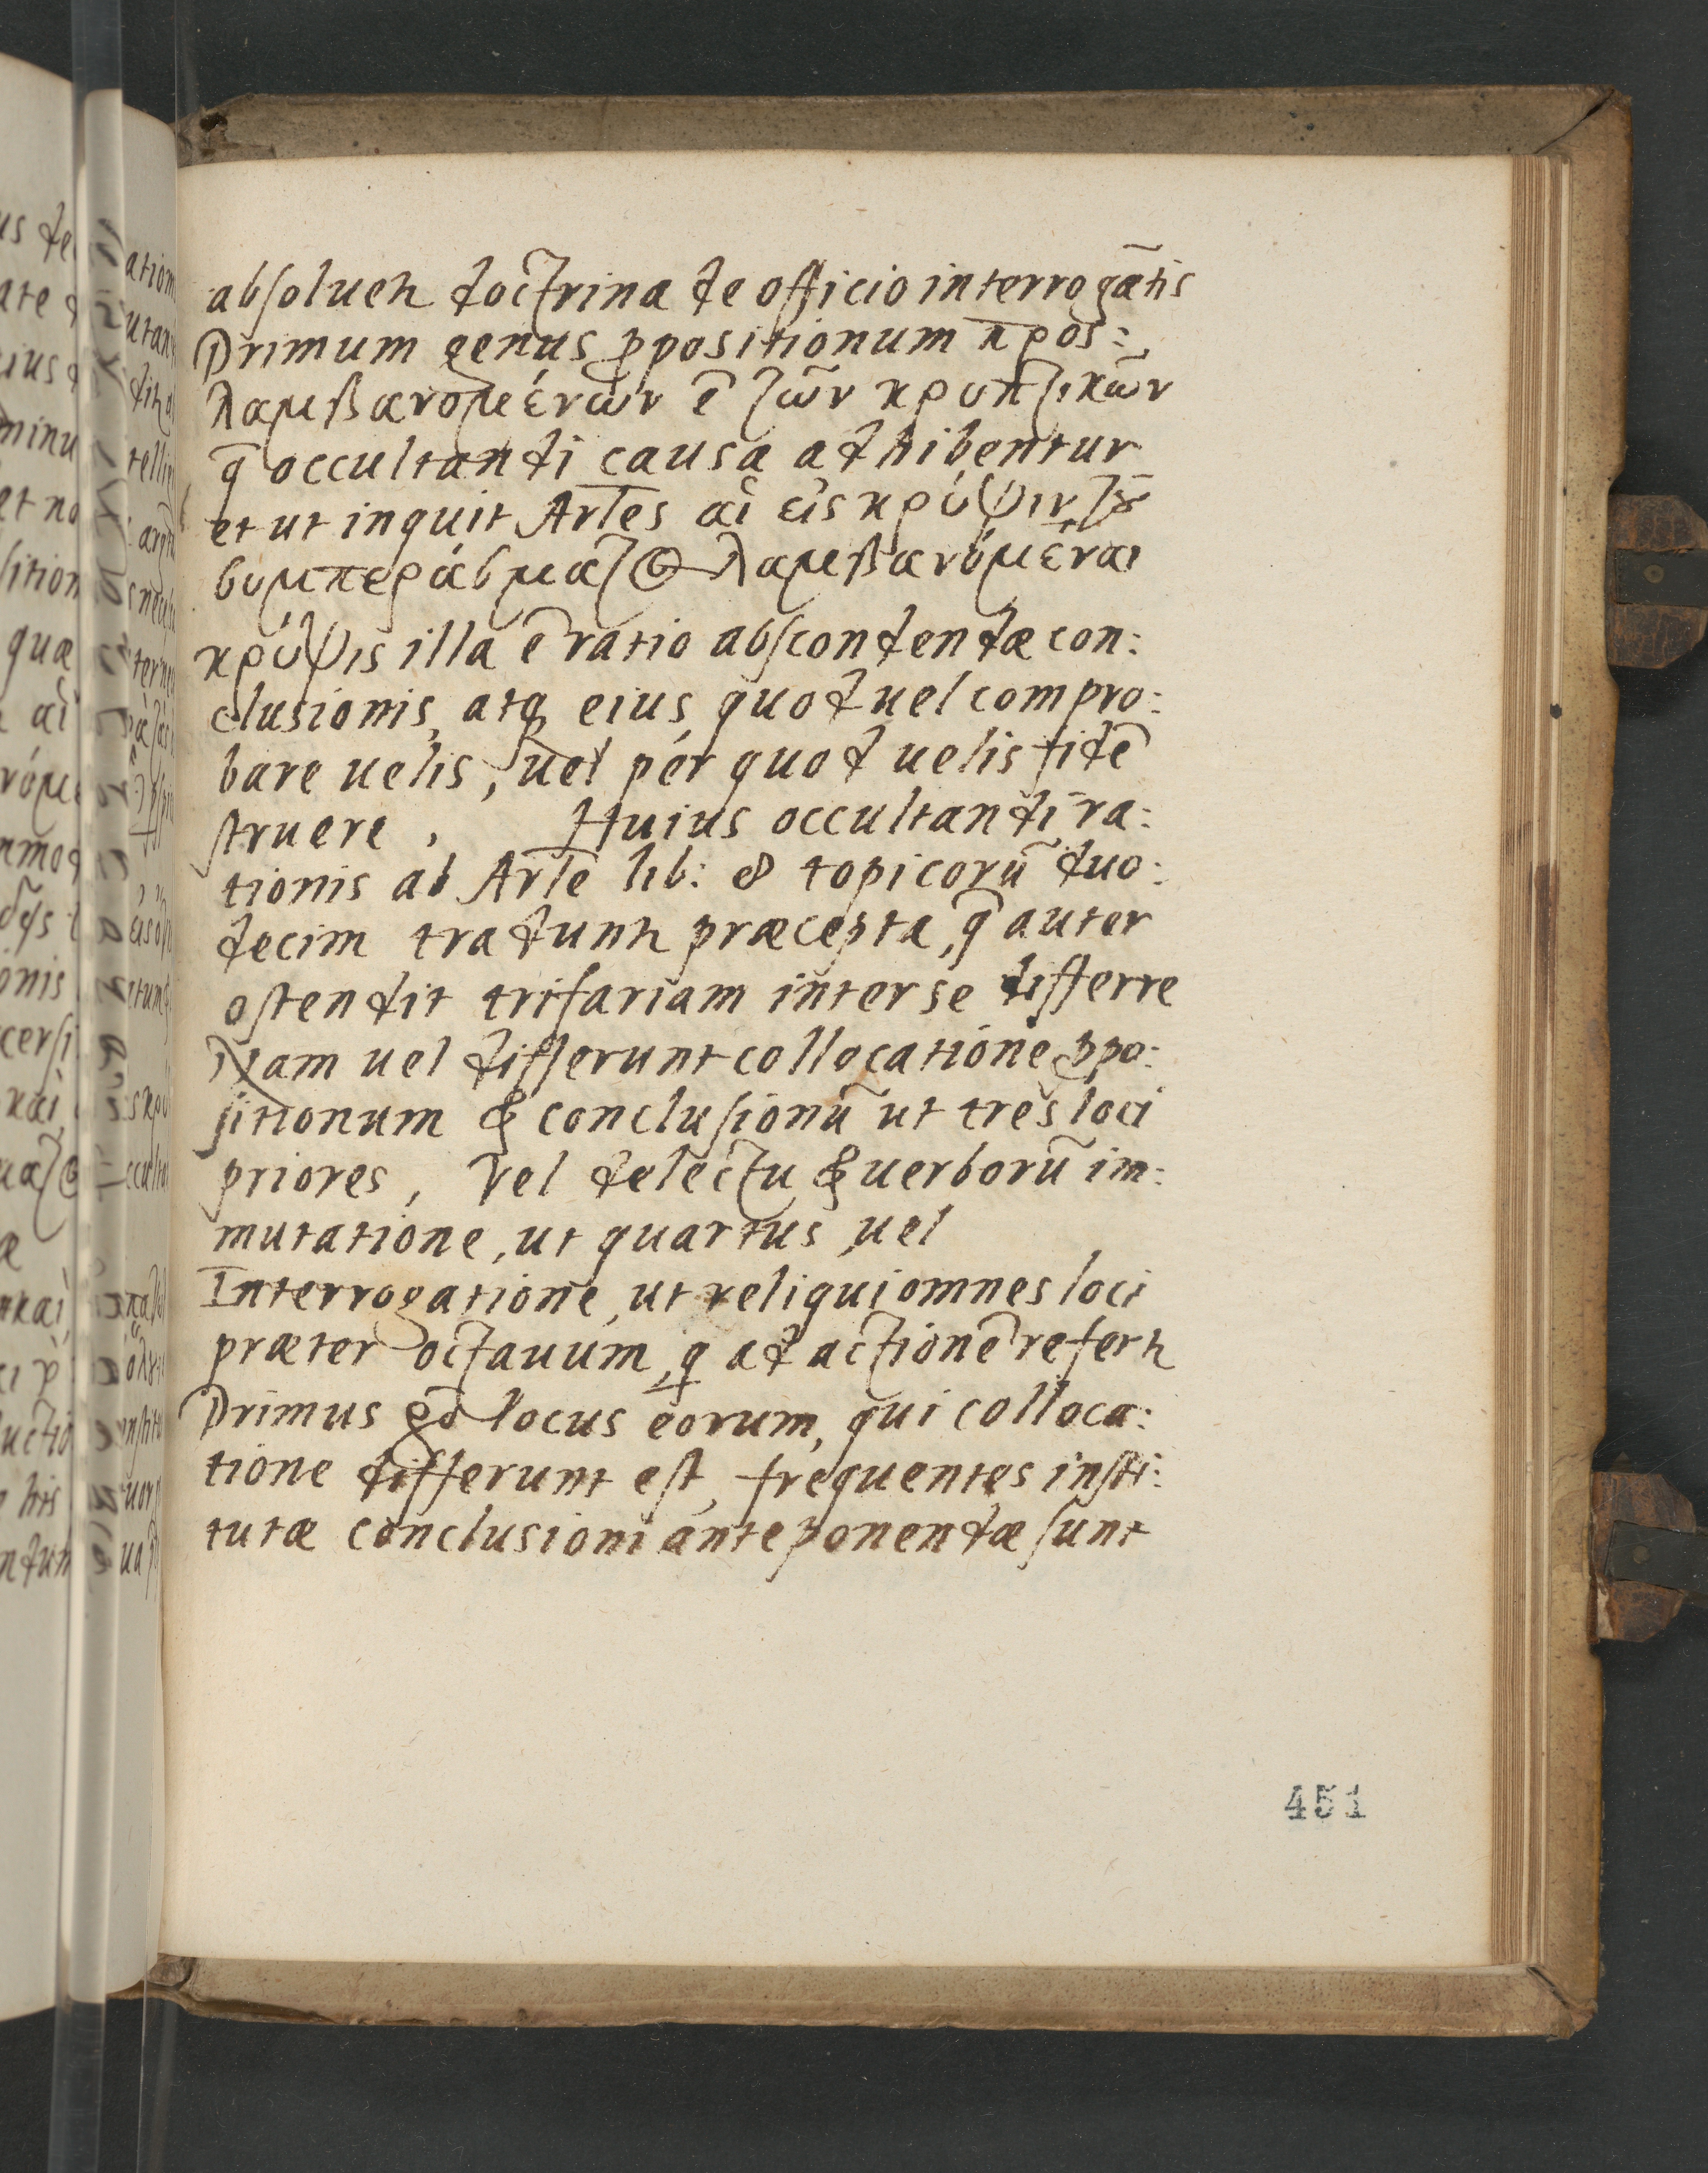 absolueh doctrina de officio interrogātis
Primum genus ꝓpositionum προσ:
λαμβανομένων ē τῶν κρυπτικῶν
q̄ occultandi causa adhibentur
et ut inquit Arles αἱ εἰς κρύψιν τȣ͂
συμπεράσματος λαμβανόμεναι
κρύψις illa ē ratio abscondendæ con:
clusionis, atq eius quod uel compro:
bare uelis, uel per quod uelis fidē
struere. Huius occultandi ra:
tionis ab Arle lib: 8 topicorū duo:
decim tradunh præcepta, q̄ auter
ostendit trifariam inter se differre
Nam uel differunt collocatione ꝓpo:
sitionum & conclusionū ut tres loci
priores, Vel delectu & uerborū im:
mutatione, ut quartus, uel
Interrogatione, ut reliqui omnes loci
præter octauum, q ad actionē referh
Primus locus eorum, qui colloca:
tione differunt est, frequentes insti:
tutæ conclusioni anteponendæ sunt
451